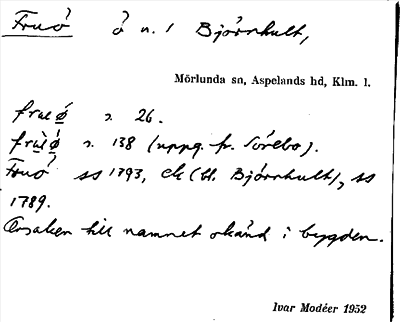 Fruö ö n. 1 Björnhult,
Mörlunda sn, Aspelands hd, Klm. l.
frue ǿ s. 26.
frùǿ s. 138 (uppg. fr. Sörebo).
Fruö ss 1793, ck (bl. Björnhult), ss
1789.
Orsaken till namnet okänd i bygden.
Ivar Modéer 1952